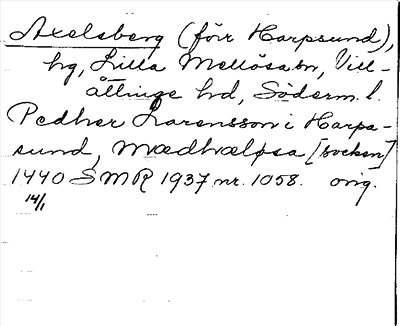 Axelsberg (förr Harpsund),
hg, Lilla Mellösa sn, Vill-
åttinge hd, Söderm. l.
Pedher Larensson i Harpa-
sund, Mædhælpsa [socken]
1440 SMR 1937 nr. 1058. orig.
14/1